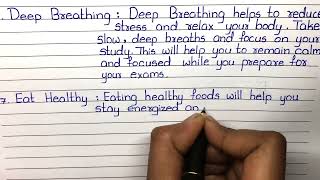 . Deep Breathing : Deep Breathing helps to reduce
stress and relax your body. Take
slow, deep breaths and focus on your
study. This will help you to remain calm
and focused while you prepare for
your exams.
7. Eat Healthy : Eating healthy foods will help you
stay energized an